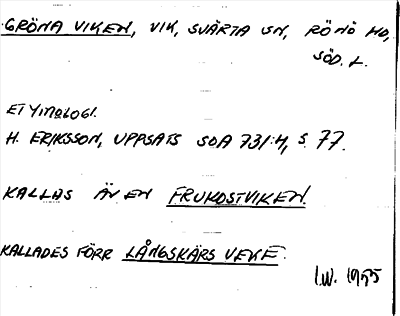 GRÖNA VIKEN, VIK, SVÄRTA SN, RÖNÖ HD,
SÖD. L.
ETYMOLOGI.
H. ERIKSSON, UPPSATS SOA 731:4, S. 77.
KALLAS ÄVEN FRUKOSTVIKEN.
KALLADES FÖRR LÅNGSKÄRS VEKE.
I.W. 1955